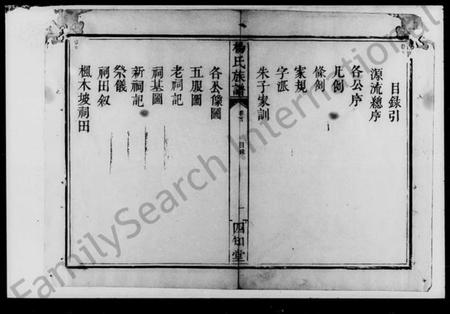 目錄引
源流總序
各公序
凡例
條例
家規
字派
朱子家訓
楊氏族譜
目錄
四知堂
各公像圖
五服圖
老祠記
祠基圖
新祠記
祭儀
祠田叙
楓木坡祠田
FamilySearch International